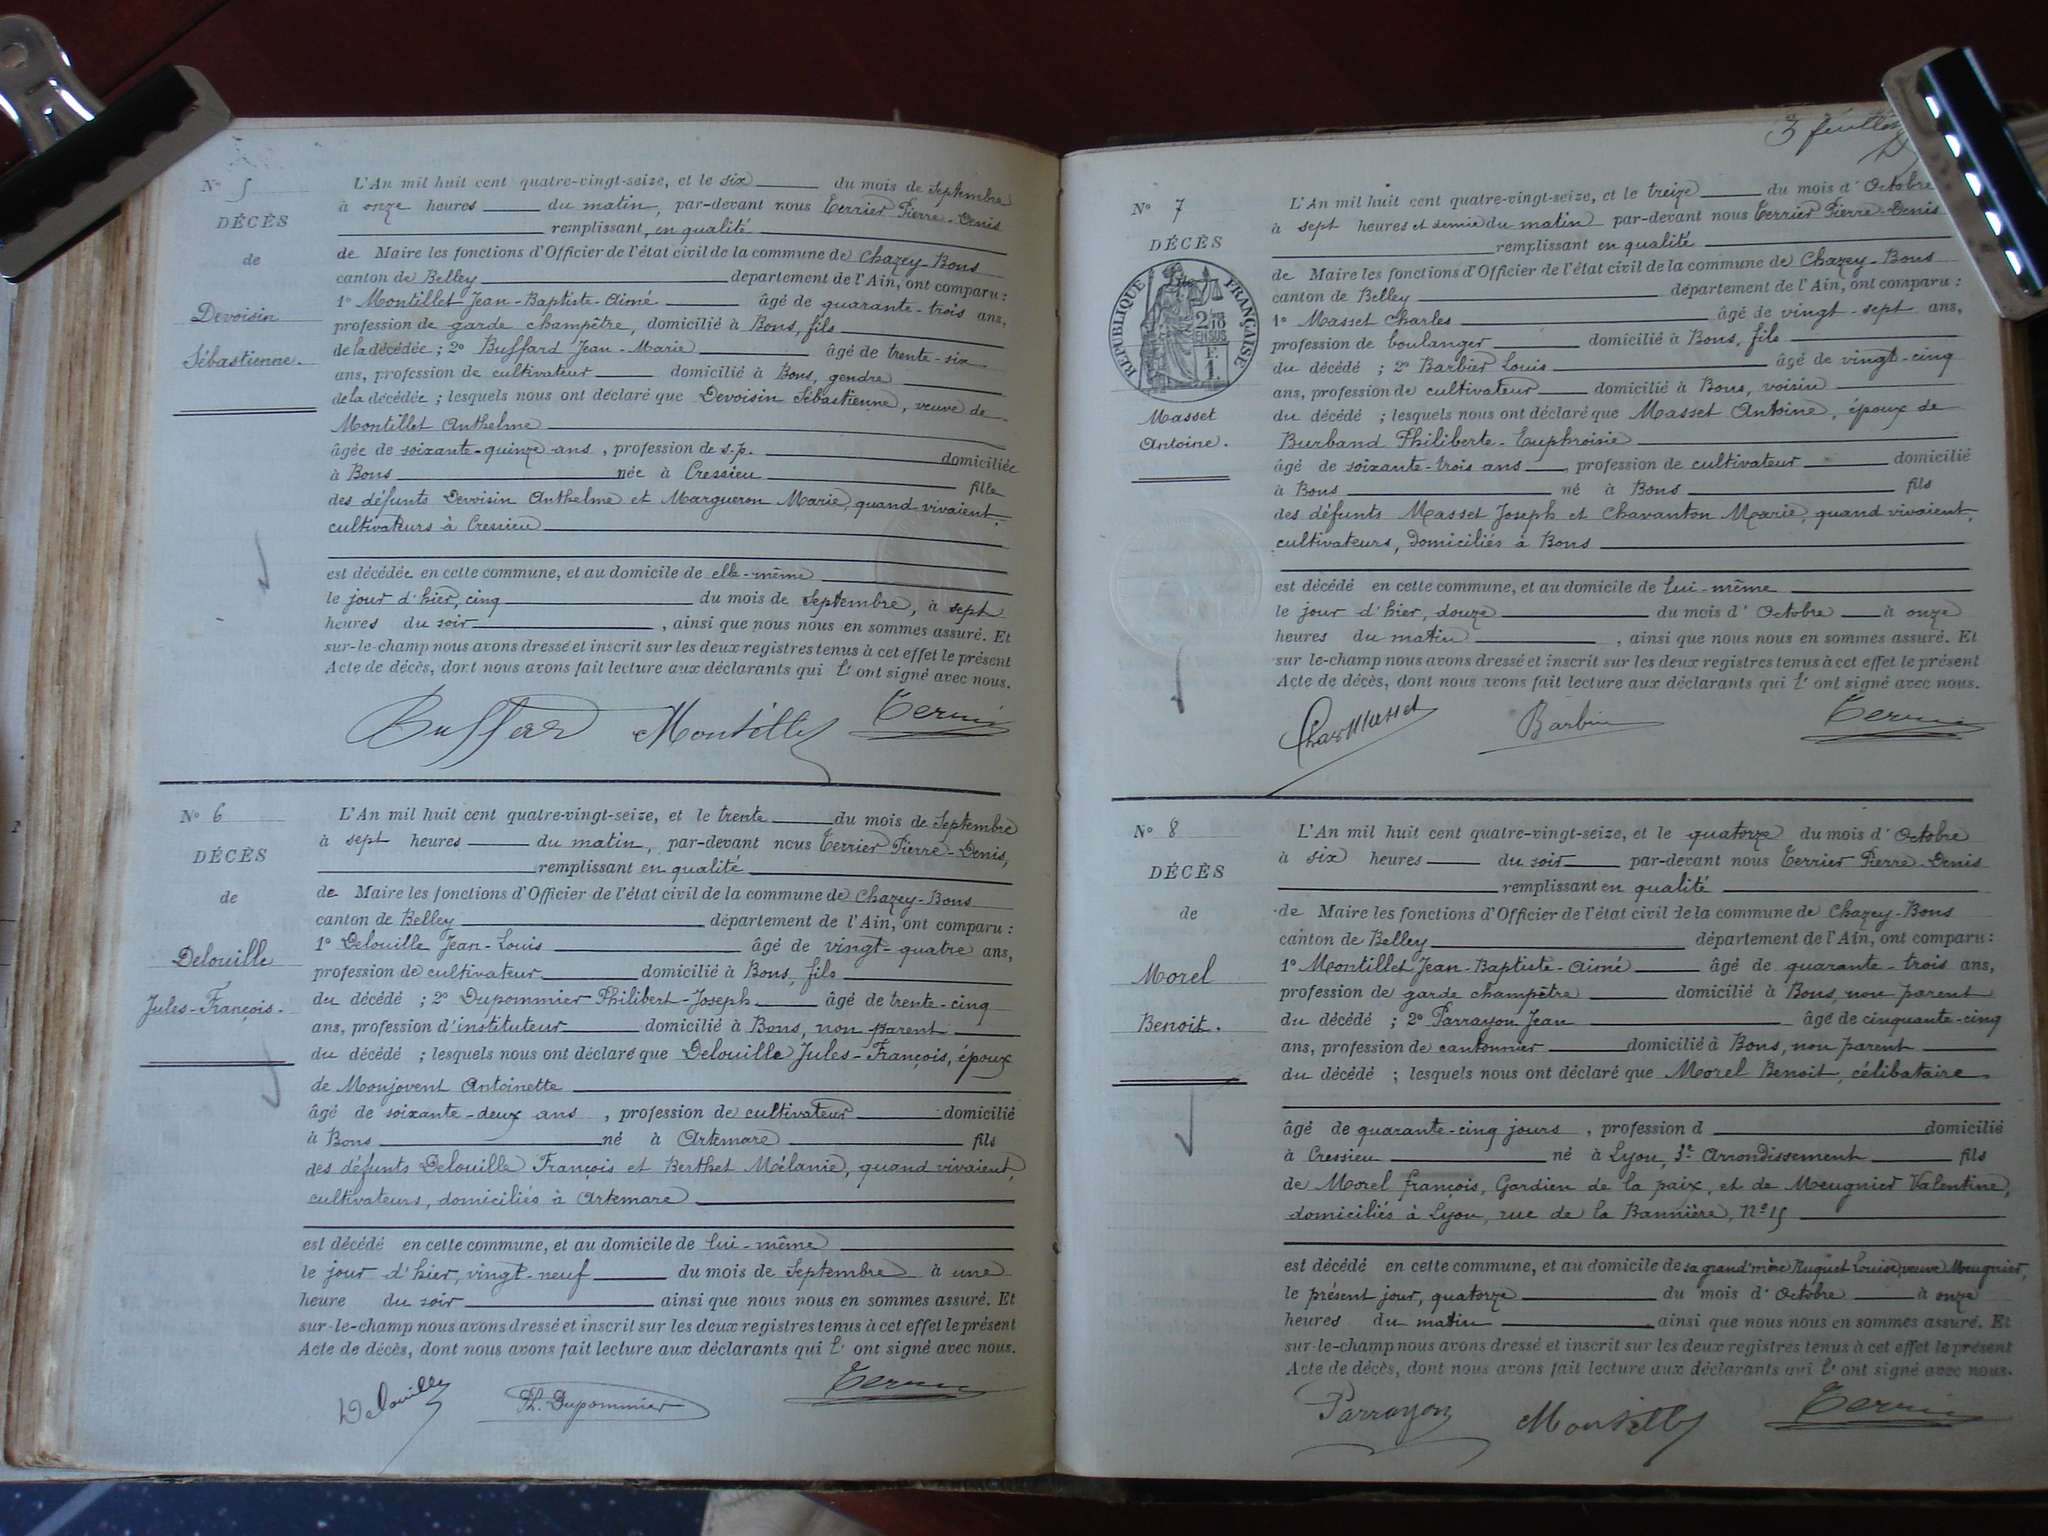 N° 5
DÉCÈS
de
Devoisin
Sébastienne.
L'An mil huit cent quatre-vingt-seize, et le six du mois de Septembre
à onze heures du matin, par-devant nous Terrier Pierre-Denis
remplissant, en qualité
de Maire les fonctions d'Officier de l'état civil de la commune de Chazey-Bons
canton de Belley département de l'Ain, ont comparu :
1° Montillet Jean-Baptiste-Aimé âgé de quarante-trois ans,
profession de garde champêtre, domicilié à Bons, fils
de la décédée ; 2° Buffard Jean-Marie âgé de trente-six
ans, profession de cultivateur domicilié à Bons, gendre
de la décédée ; lesquels nous ont déclaré que Devoisin Sébastienne, veuve de
Montillet Anthelme
âgée de soixante-quinze ans, profession de s.p. domiciliée
à Bons née à Cressieu fille
des défunts Devoisin Anthelme et Margueron Marie, quand vivaient,
cultivateurs à Cressieu
est décédée en cette commune, et au domicile de elle-même
le jour d'hier, cinq du mois de Septembre, à sept
heures du soir, ainsi que nous nous en sommes assuré. Et
sur-le-champ nous avons dressé et inscrit sur les deux registres tenus à cet effet le présent
Acte de décès, dont nous avons fait lecture aux déclarants qui l'ont signé avec nous.
Buffard Montillet Terrier
N° 6
DÉCÈS
de
Delouille
Jules-François.
L'An mil huit cent quatre-vingt-seize, et le trente du mois de Septembre
à sept heures du matin, par-devant nous Terrier Pierre-Denis,
remplissant en qualité
de Maire les fonctions d'Officier de l'état civil de la commune de Chazey-Bons
canton de Belley département de l'Ain, ont comparu :
1° Delouille Jean-Louis âgé de vingt-quatre ans,
profession de cultivateur domicilié à Bons, fils
du décédé ; 2° Dupommier Philibert-Joseph âgé de trente-cinq
ans, profession d'instituteur domicilié à Bons, non parent
du décédé ; lesquels nous ont déclaré que Delouille Jules-François, époux
de Monjovent Antoinette
âgé de soixante-deux ans, profession de cultivateur domicilié
à Bons né à Artemare fils
des défunts Delouille François et Berthet Mélanie, quand vivaient,
cultivateurs, domiciliés à Artemare
est décédé en cette commune, et au domicile de lui-même
le jour d'hier, vingt-neuf du mois de Septembre à une
heure du soir ainsi que nous nous en sommes assuré. Et
sur-le-champ nous avons dressé et inscrit sur les deux registres tenus à cet effet le présent
Acte de décès, dont nous avons fait lecture aux déclarants qui l'ont signé avec nous.
Delouille Ph. Dupommier Terrier
3 feuillet
N° 7
DÉCÈS
de
RÉPUBLIQUE FRANÇAISE
2/10 EN SUS
F. 1.
Masset
Antoine.
L'An mil huit cent quatre-vingt-seize, et le treize du mois d'Octobre
à sept heures et demie du matin par-devant nous Terrier Pierre-Denis
remplissant en qualité
de Maire les fonctions d'Officier de l'état civil de la commune de Chazey-Bons
canton de Belley département de l'Ain, ont comparu :
1° Masset Charles âgé de vingt-sept ans,
profession de boulanger domicilié à Bons, fils
du décédé ; 2° Barbier Louis âgé de vingt-cinq
ans, profession de cultivateur domicilié à Bons, voisin
du décédé ; lesquels nous ont déclaré que Masset Antoine, époux de
Burband Philiberte-Euphroisie
âgé de soixante-trois ans, profession de cultivateur domicilié
à Bons né à Bons fils
des défunts Masset Joseph et Chavanton Marie, quand vivaient,
cultivateurs, domiciliés à Bons
est décédé en cette commune, et au domicile de lui-même
le jour d'hier, douze du mois d'Octobre à onze
heures du matin, ainsi que nous nous en sommes assuré. Et
sur-le-champ nous avons dressé et inscrit sur les deux registres tenus à cet effet le présent
Acte de décès, dont nous avons fait lecture aux déclarants qui l'ont signé avec nous.
Char Masset Barbier Terrier
N° 8
DÉCÈS
de
Morel
Benoit.
L'An mil huit cent quatre-vingt-seize, et le quatorze du mois d'Octobre
à six heures du soir par-devant nous Terrier Pierre-Denis
remplissant en qualité
de Maire les fonctions d'Officier de l'état civil de la commune de Chazey-Bons
canton de Belley département de l'Ain, ont comparu :
1° Montillet Jean-Baptiste-Aimé âgé de quarante-trois ans,
profession de garde champêtre domicilié à Bons, non parent
du décédé ; 2° Parrayon Jean âgé de cinquante-cinq
ans, profession de cantonnier domicilié à Bons, non parent
du décédé ; lesquels nous ont déclaré que Morel Benoit, célibataire.
âgé de quarante-cinq jours, profession d domicilié
à Cressieu né à Lyon, 3e Arrondissement fils
de Morel françois, Gardien de la paix, et de Meugnier Valentine,
domiciliés à Lyon, rue de la Bannière, N° 15
est décédé en cette commune, et au domicile de sa grand'mère Huguet Louise, veuve Meugnier,
le présent jour, quatorze du mois d'Octobre à onze
heures du matin, ainsi que nous nous en sommes assuré. Et
sur-le-champ nous avons dressé et inscrit sur les deux registres tenus à cet effet le présent
Acte de décès, dont nous avons fait lecture aux déclarants qui l'ont signé avec nous.
Parrayon Montillet Terrier